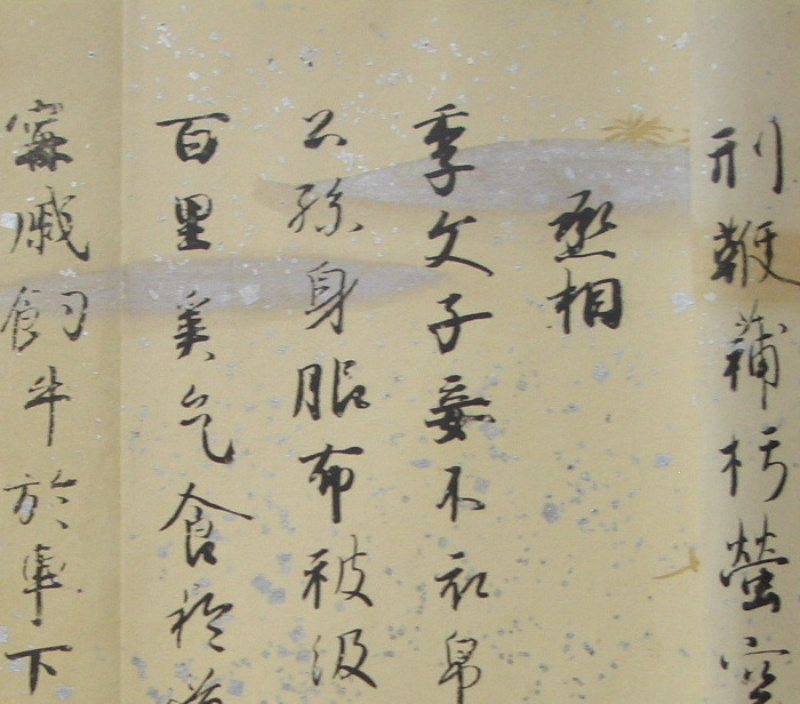 刑鞭蒲朽螢空
丞相
季文子妾不衣帛
公孫身服布被汲
百里奚乞食於
甯戚飼牛於車下